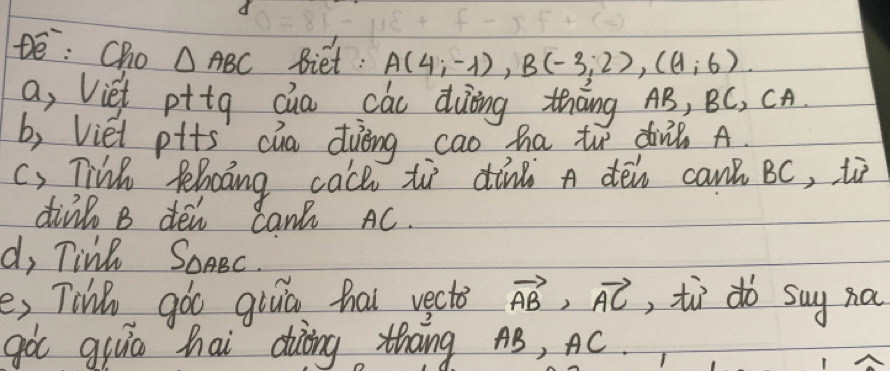 Đề: Cho △ABC biết: A(4;-1), B(-3;2), C(1;6).
a, Viết pttq của các đường thẳng AB, BC, CA.
b, Viết ptts của đường cao hạ từ đỉnh A.
c, Tính khoảng cách từ đỉnh A đến cạnh BC, từ
đỉnh B đến cạnh AC.
d, Tính S△ABC.
e, Tính góc giữa hai vectơ AB, AC, từ đó suy ra
góc giữa hai đường thẳng AB, AC.